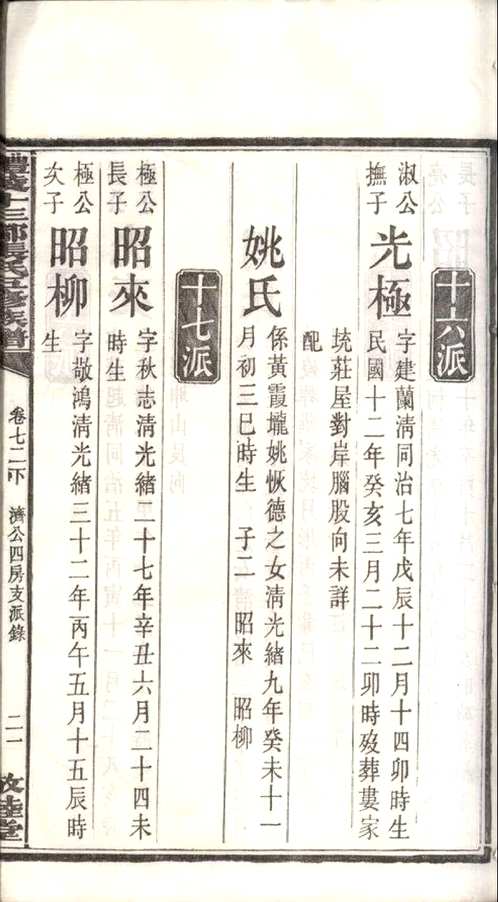 十六派
淑公撫子
光極
字建蘭淸同治七年戊辰十二月十四卯時生
民國十二年癸亥三月二十二卯時歿葬婁家
㘬莊屋對岸腦股向未詳
配
姚氏
係黃霞壠姚恢德之女淸光緒九年癸未十一
月初三巳時生 子二 昭來 昭柳
十七派
極公長子
昭來
字秋志淸光緒二十七年辛丑六月二十四未
時生
極公次子
昭柳
字敬鴻淸光緒三十二年丙午五月十五辰時
生
十三都 氏五修族譜
卷七二下 濟公四房支派錄 二一
敦睦堂